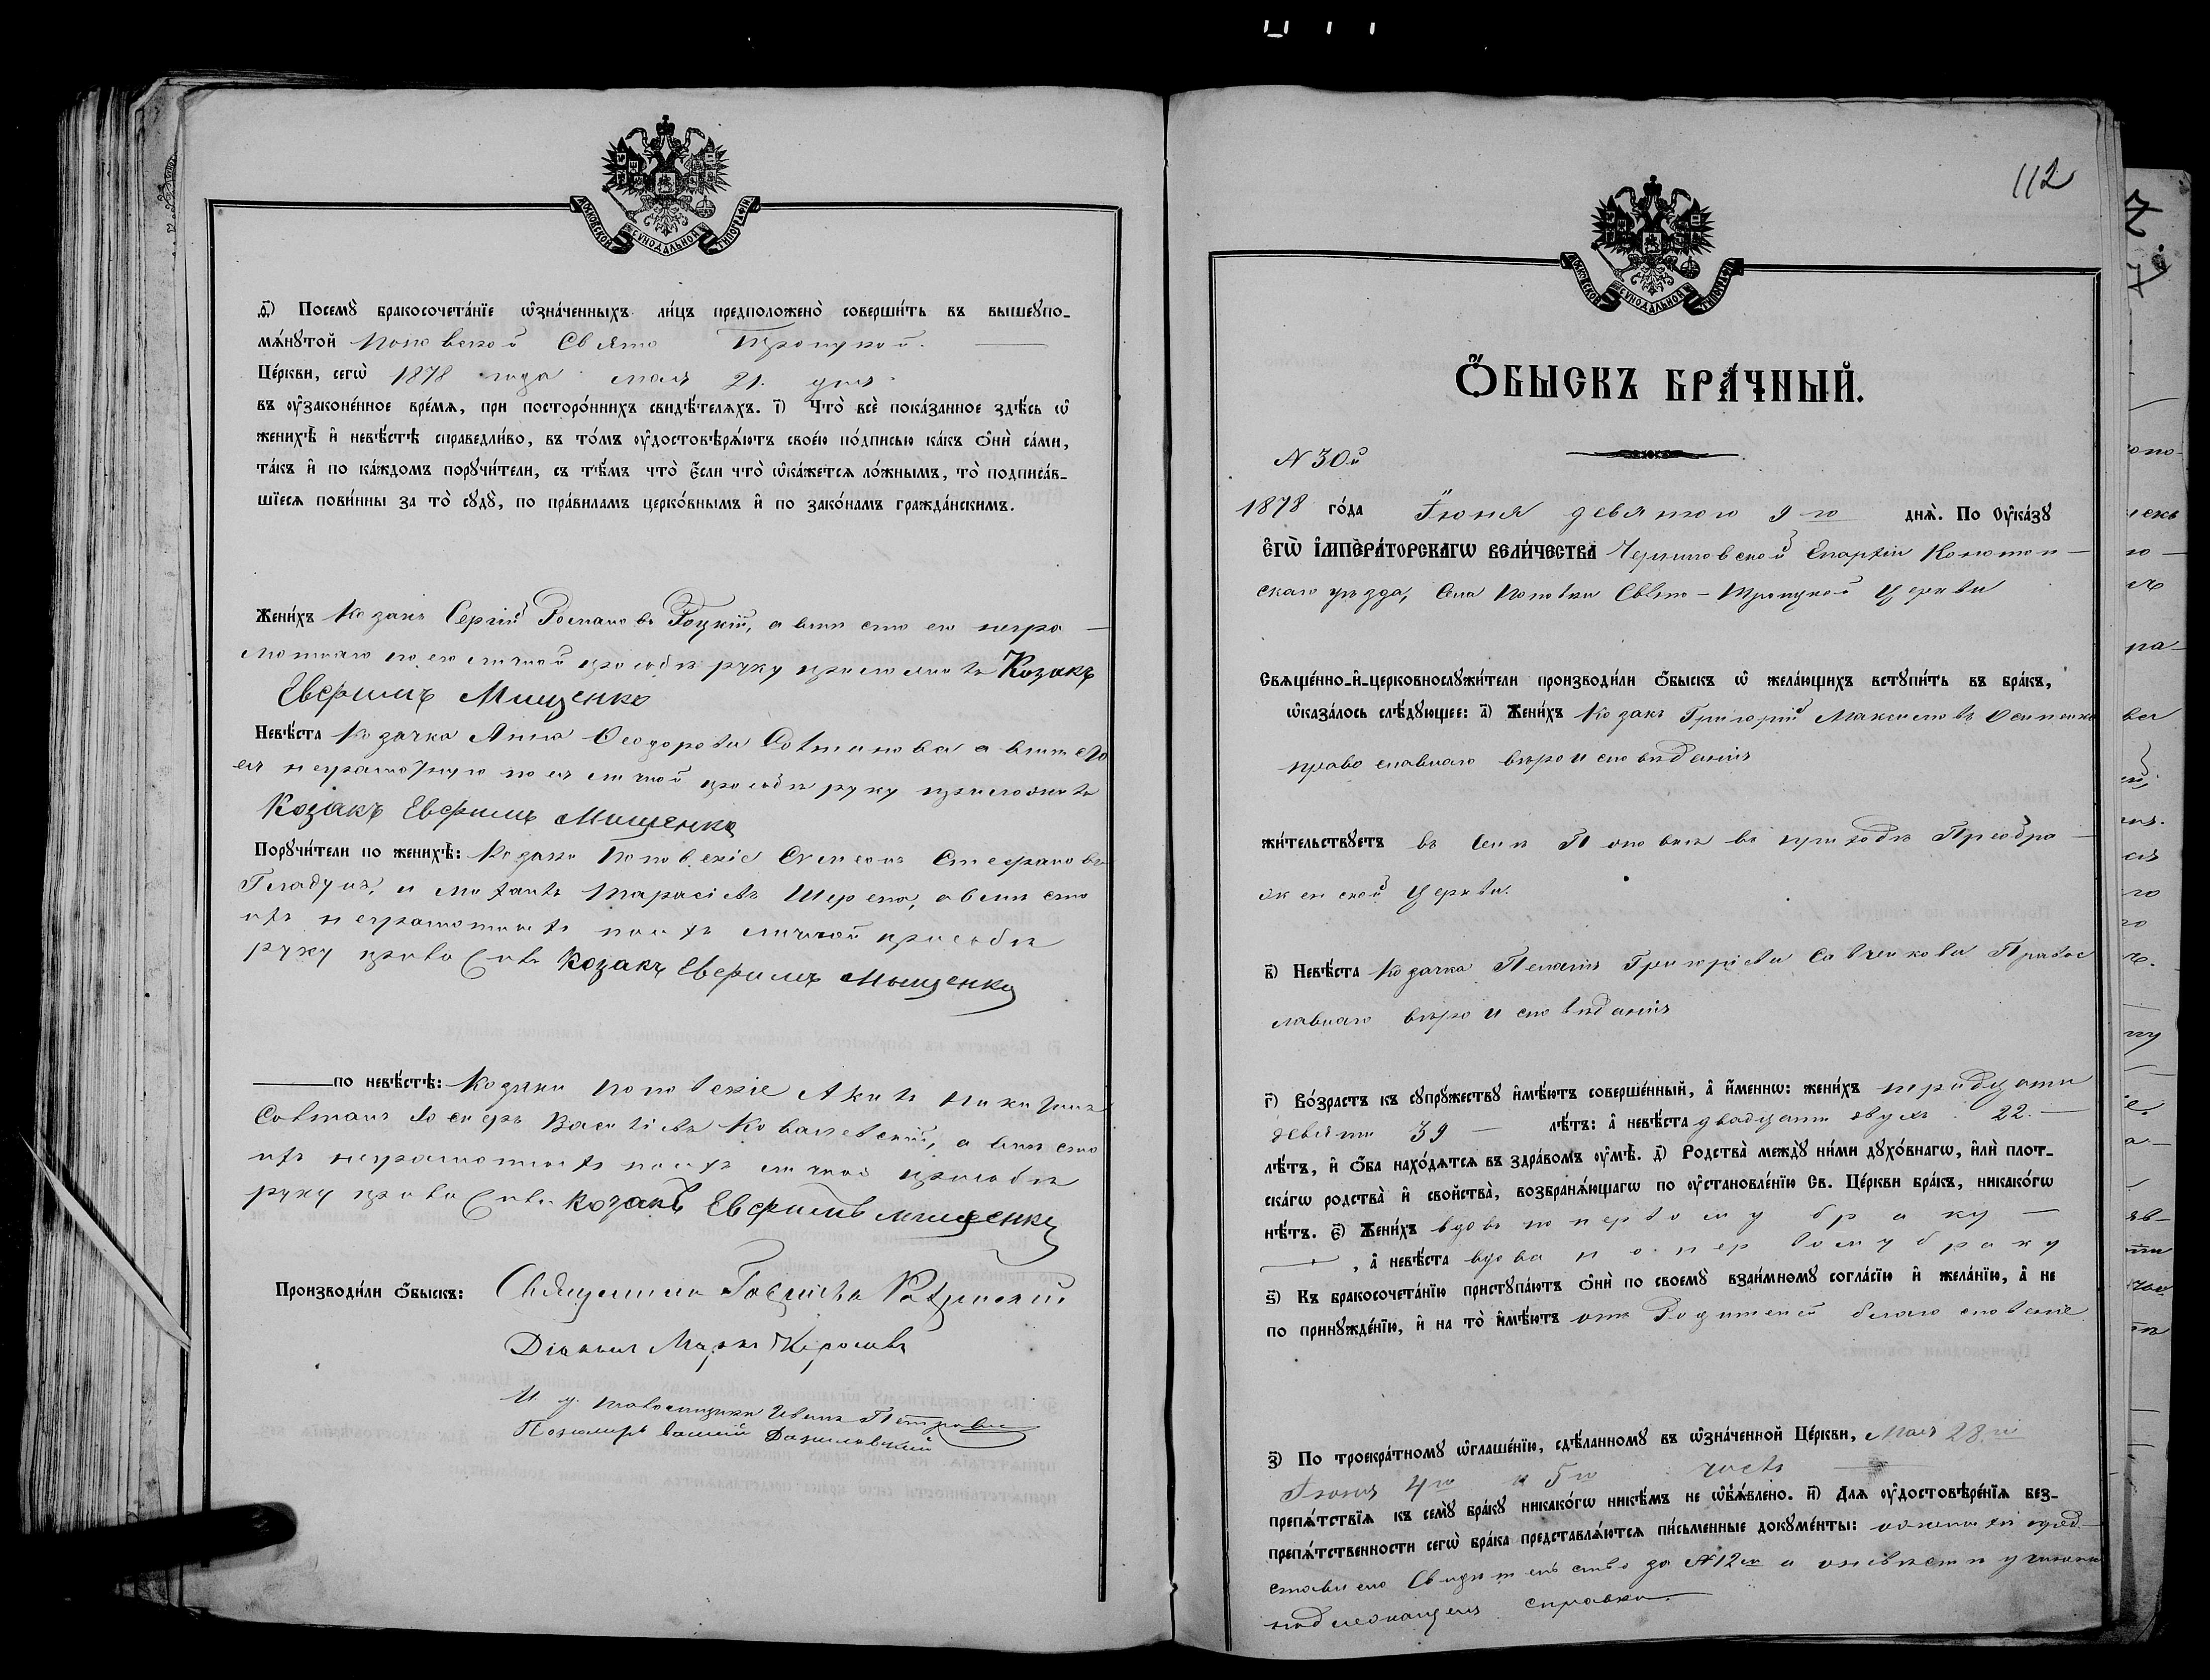 МОСКОВСКОЙ СѴНОДАЛЬНОЙ ТИПОГРАФІИ
д҃) Посемꙋ̀ бракосочета́нїе ѡ҆зна́ченныхъ ли́цъ предположено̀ соверши́ть въ вышеꙋпо-
мѧ́нꙋтой Поповской Свято Троицкой.
Це́ркви, сегѡ̀ 1878 года мая 21. дня
въ ѹ҆законе́нное вре́мѧ, при посторо́ннихъ свидѣ́телѧхъ. і҃) Что̀ всѐ пока́занное здѣ́сь ѡ҆
женихѣ̀ и҆ невѣ́стѣ справедли́во, въ то́мъ ѹ҆достовѣрѧ́ютъ свое́ю по́дписью ка́къ ѻ҆нѝ са́ми,
та́къ и҆ по ка́ждомъ порꙋчи́тели, съ тѣ́мъ что̀ є҆́сли что̀ ѡ҆ка́жетсѧ ло́жнымъ, то̀ подписа́в-
шїесѧ пови́нны за то̀ сꙋдꙋ̀, по пра́виламъ церко́внымъ и҆ по зако́намъ гражда́нскимъ.
Жени́хъ Козакъ Сергій Романовъ Гоцкій, а вместо его негра-
мотнаго по его личной просьбѣ руку приложилъ Козакъ
Евфимъ Мищенко
Невѣ́ста Козачка Анна Ѳеодорова Совтанова а вместо
ея неграмотную по ея личной просьбѣ руку приложилъ
Козакъ Евфимъ Мищенко
Порꙋчи́тели по женихѣ̀: Козаки Поповскіе Симеонъ Стефановъ
Гладунъ, и Михаилъ Тарасіевъ Шерета, а вместо
ихъ неграмотныхъ по ихъ личной просьбѣ
руку приложилъ Козакъ Евфимъ Мищенко
по невѣ́стѣ: Козаки Поповскіе Никитинъ
Совтанъ Іосифъ Васильевъ Ковалевскій, а вместо
ихъ неграмотныхъ по ихъ личной просьбѣ
руку приложилъ козакъ Евфимъ Мищенко
Производи́ли ѻ҆́быскъ: Священникъ
Діаконъ Маркъ
И. д. Псаломщика Иванъ Петровъ
Даниловскій
112
МОСКОВСКОЙ СѴНОДАЛЬНОЙ ТИПОГРАФІИ
Ѻ҆́БЫСКЪ БРА́ЧНЫЙ.
N 30й
1878 го́да Іюня девятого 9го днѧ̀. По Ѹ҆ка́зꙋ
Є҆ГѠ̀ И҆МПЕРА́ТОРСКАГѠ ВЕЛИ́ЧЕСТВА Черниговской Епархіи Конотоп-
скаго уѣзда, Села Поповки Свято-Троицкой Церкви
Свѧще́нно-и҆-церковнослꙋжи́тели производи́ли ѻ҆́быскъ ѡ҆ жела́ющихъ встꙋпи́ть въ бра́къ,
ѡ҆каза́лось слѣ́дꙋющее: а҃) Жени́хъ Козакъ Григорій Максимовъ Осипенко
православнаго вѣроисповѣданія
жи́тельствꙋетъ въ Селѣ Поповкѣ въ приходѣ Преобра-
женской Церкви.
в҃) Невѣ́ста Козачка Пелагія Григоріева Савченкова Правос
лавнаго вѣроисповѣданія
г҃) Во́зрастъ къ сꙋпрꙋ́жествꙋ и҆мѣ́ютъ соверше́нный, а҆ и҆́меннѡ: жени́хъ тридцати
девяти 39 — лѣ́тъ: а҆ невѣ́ста двадцати двухъ 22. —
лѣ́тъ, и҆ ѻ҆́ба нахо́дѧтсѧ въ здра́вомъ ѹ҆мѣ̀. д҃) Родства̀ междꙋ̀ ни́ми дꙋхо́внагѡ, и҆лѝ плот-
ска́гѡ родства̀ и҆ свойства̀, возбранѧ́ющагѡ по ѹ҆становле́нїю Св. Це́ркви бра́къ, никако́гѡ
нѣ́тъ. є҃) Жени́хъ вдовъ по первому браку —
, а҆ невѣ́ста вдова по первому браку
ѕ҃) Къ бракосочета́нїю пристꙋпа́ютъ ѻ҆нѝ по своемꙋ̀ взаи́мномꙋ согла́сїю и҆ жела́нїю, а҆ не
по принꙋжде́нїю, и҆ на то̀ и҆мѣ́ютъ отъ Родителей благословеніе
з҃) По троекра́тномꙋ ѡ҆глаше́нїю, сдѣ́ланномꙋ въ ѡ҆зна́ченной Це́ркви, Мая 28го
Іюня 4го и 5го числъ
препѧ́тствїѧ къ семꙋ̀ бра́кꙋ никако́гѡ никѣ́мъ не ѡ҆б̾ѧ́влено. и҃) Длѧ ѹ҆достовѣре́нїѧ без-
препѧ́тственности сегѡ̀ бра́ка представлѧ́ютсѧ пи́сьменные докꙋме́нты: о женихѣ пред-
ставлено Свидѣтельство за №12м а о невѣстѣ учинена
надлежащая справка.